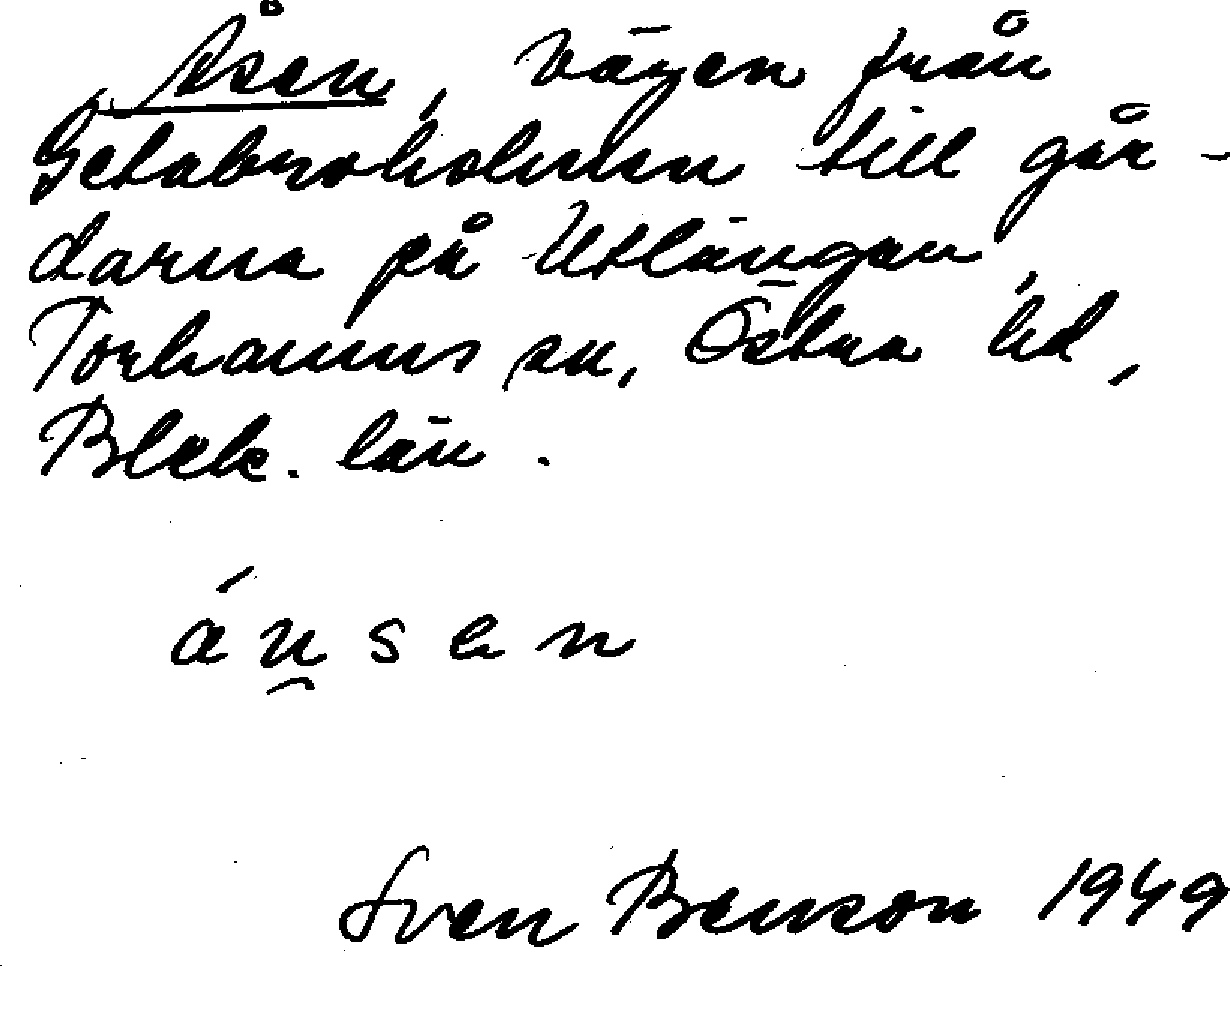 Åsen, vägen från
Getabroholmen till går-
darna på Utlängan,
Torhamns sn, Östra hd,
Blek. län.
áu̯sen
Sven Benson 1949